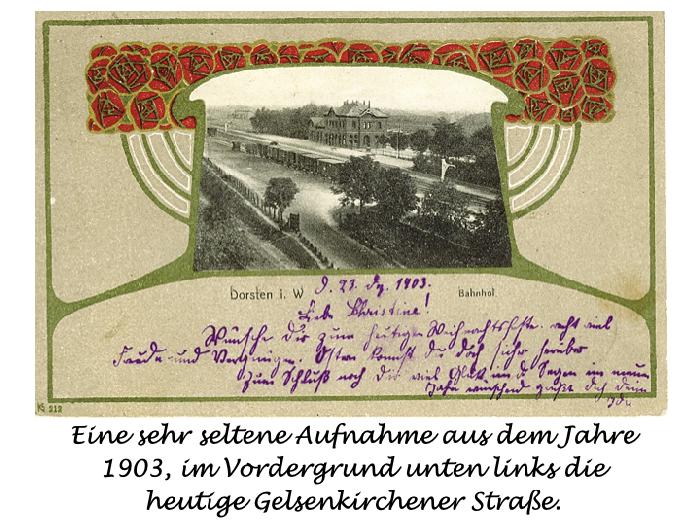 Dorsten i. W D. 23. Dz. 1903. Bahnhof.
Liebe Christine!
Wünsche Dir zum heutigen Weihnachtsfeste recht viel
Freude und Vergnügen. Ostern kommst Du doch hierüber
Zum Schluß noch Dir viel Glück und Segen im neuen
Jahr wünschend grüßt dich deine
Ida
KS 212
Eine sehr seltene Aufnahme aus dem Jahre
1903, im Vordergrund unten links die
heutige Gelsenkirchener Straße.